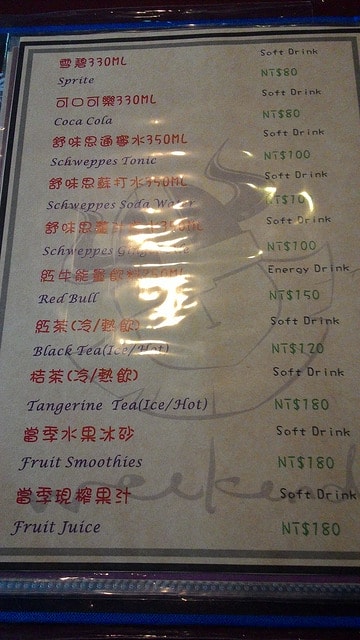 雪碧330ML Soft Drink
Sprite NT$80
可口可樂330ML Soft Drink
Coca Cola NT$80
舒味思通寧水350ML Soft Drink
Schweppes Tonic NT$100
舒味思蘇打水350ML Soft Drink
Schweppes Soda Water NT$10
舒味思薑 Soft Drink
Schweppes NT$100
紅牛能量飲料250ML Energy Drink
Red Bull NT$150
紅茶(冷/熱飲) Soft Drink
Black Tea(Ice/Hot) NT$120
桔茶(冷/熱飲) Soft Drink
Tangerine Tea(Ice/Hot) NT$180
當季水果冰砂 Soft Drink
Fruit Smoothies NT$180
weekend
當季現榨果汁 Soft Drink
Fruit Juice NT$180